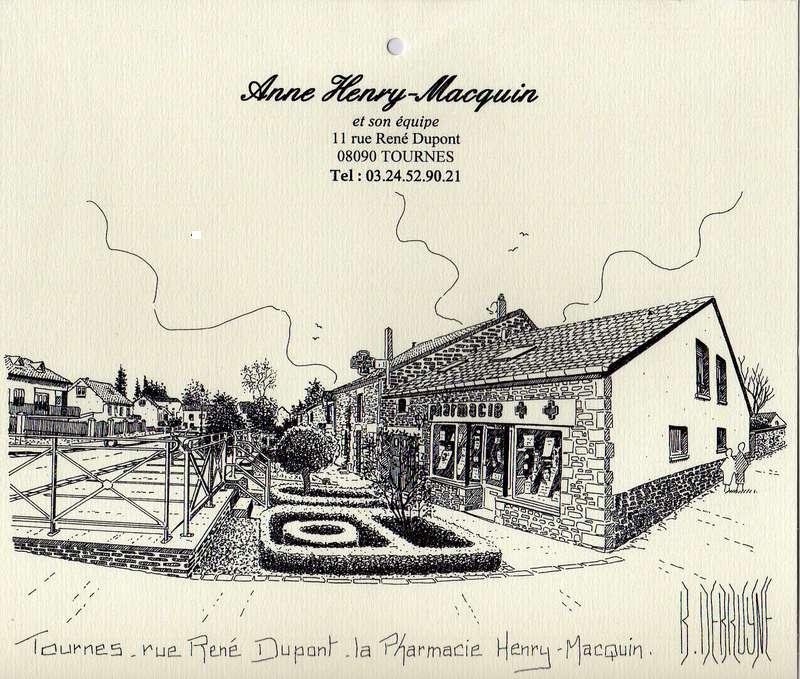 Anne Henry-Macquin
et son équipe
11 rue René Dupont
08090 TOURNES
Tel : 03.24.52.90.21
PHARMACIE
Tournes. rue René Dupont. la Pharmacie Henry-Macquin.
R. DEBRUYNE